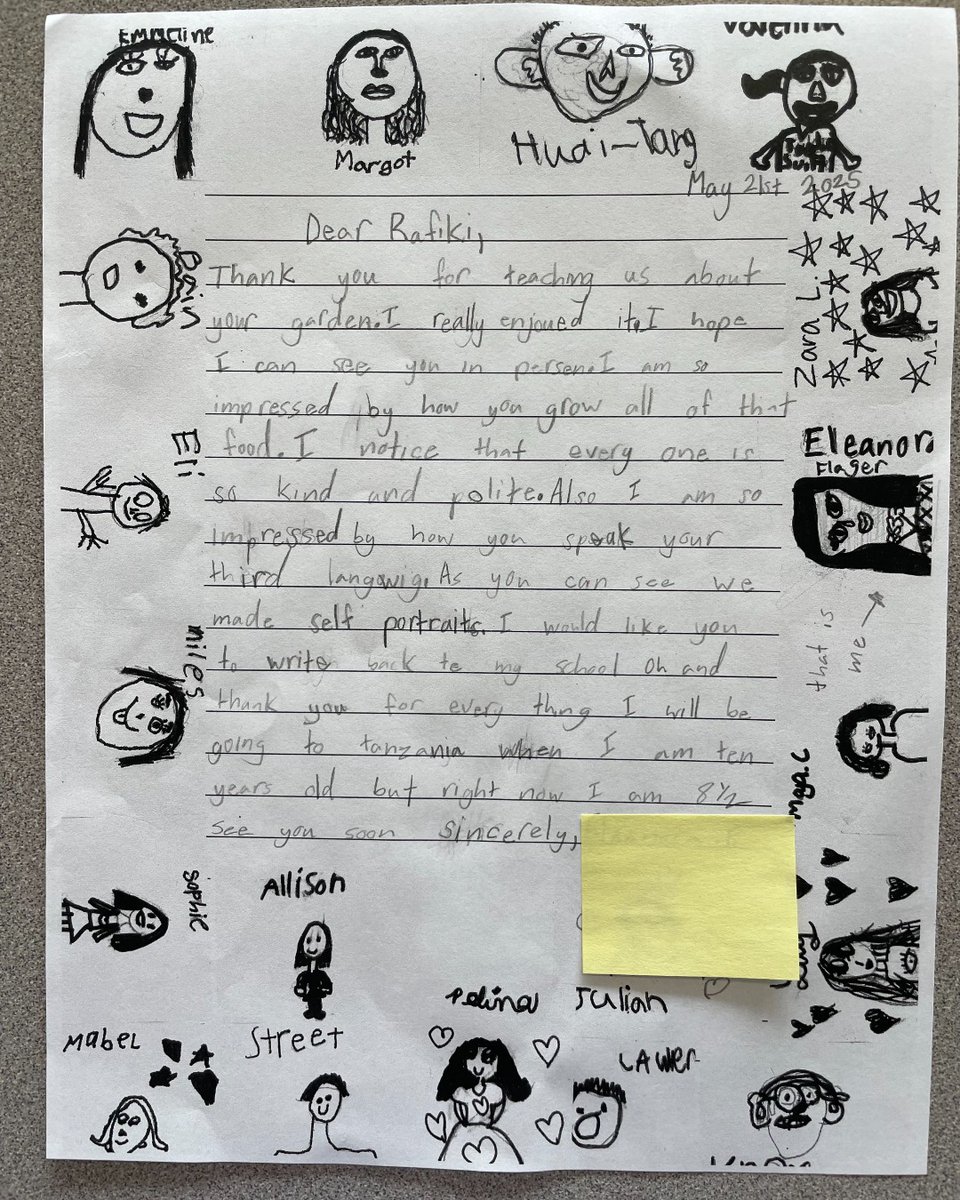 Emmeline
Margot
Huai-Tang
May 21st 2025
Dear Rafiki,
Thank you for teaching us about
your garden. I really enjoued it. I hope
I can see you in person. I am so
impressed by how you grow all of that
food. I notice that every one is
so kind and polite. Also I am so
impressed by how you speak your
third langwig. As you can see we
made self portraits. I would like you
to write back to my school Oh and
thank you for every thing I will be
going to tanzania when I am ten
years old but right now I am 8 1/2
see you soon Sincerely,
Zara L.
Eli
Eleanor
Flager
that is
me →
niles
Maya.C
Sophie
Allison
Julian
Mabel
Street
Lawler